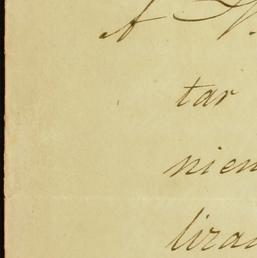 A V.
tar
nien
lirad